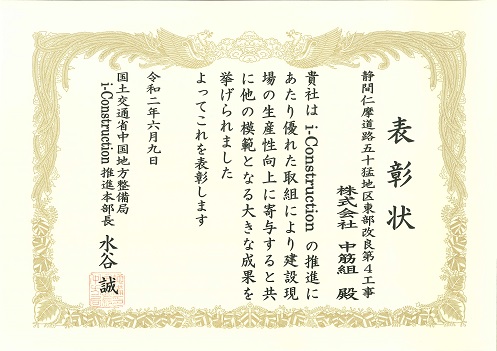 表彰状
静間仁摩道路五十猛地区東部改良第4工事
株式会社 中筋組 殿
貴社は i-Construction の推進に
あたり優れた取組により建設現
場の生産性向上に寄与すると共
に他の模範となる大きな成果を
挙げられました
よってこれを表彰します
令和二年六月九日
国土交通省中国地方整備局
i-Construction 推進本部長 水谷 誠